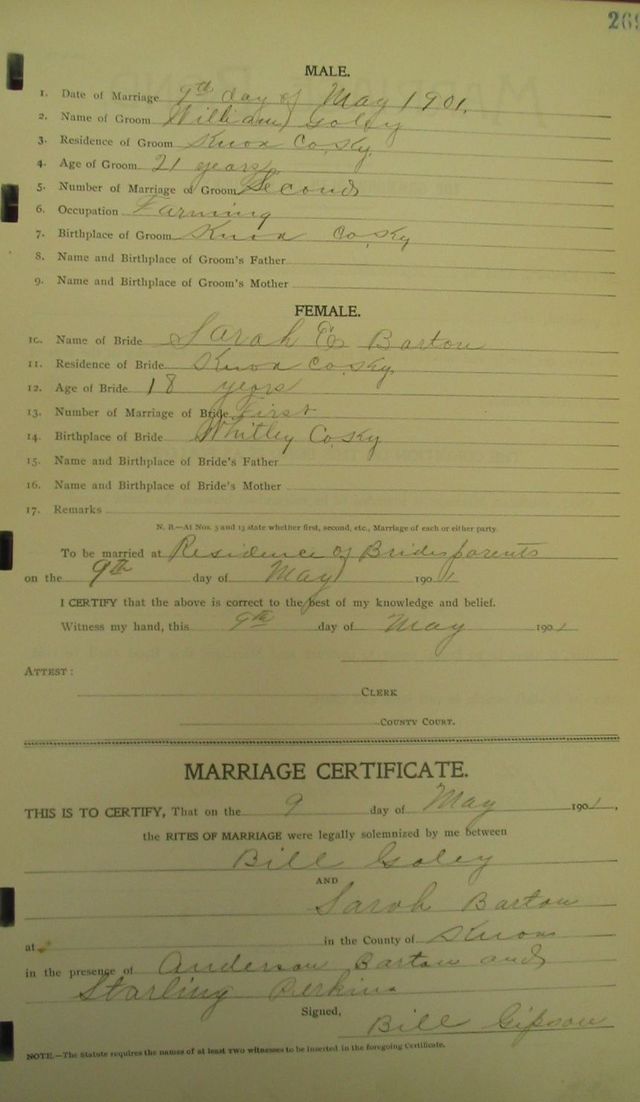 269
MALE.
1. Date of Marriage 9th day of May 1901.
2. Name of Groom William Goley
3. Residence of Groom Knox Co, Ky.
4. Age of Groom 21 years
5. Number of Marriage of Groom Second
6. Occupation Farming
7. Birthplace of Groom Knox Co, Ky
8. Name and Birthplace of Groom's Father
9. Name and Birthplace of Groom's Mother
FEMALE.
10. Name of Bride Sarah E Barton
11. Residence of Bride Knox Co, Ky,
12. Age of Bride 18 years
13. Number of Marriage of Bride First
14. Birthplace of Bride Whitley Co, Ky
15. Name and Birthplace of Bride's Father
16. Name and Birthplace of Bride's Mother
17. Remarks
N. B.—At Nos. 5 and 13 state whether first, second, etc., Marriage of each or either party.
To be married at Residence of Brides parents
on the 9th day of May 1901
I CERTIFY that the above is correct to the best of my knowledge and belief.
Witness my hand, this 9th day of May 1901
ATTEST:
CLERK
COUNTY COURT.
MARRIAGE CERTIFICATE.
THIS IS TO CERTIFY, That on the 9 day of May 1901,
the RITES OF MARRIAGE were legally solemnized by me between
Bill Goley
AND
Sarah Barton
at in the County of Knox
in the presence of Anderson Barton and
Starling Perkins
Signed,
Bill Gipson
NOTE.—The Statute requires the names of at least TWO witnesses to be inserted in the foregoing Certificate.